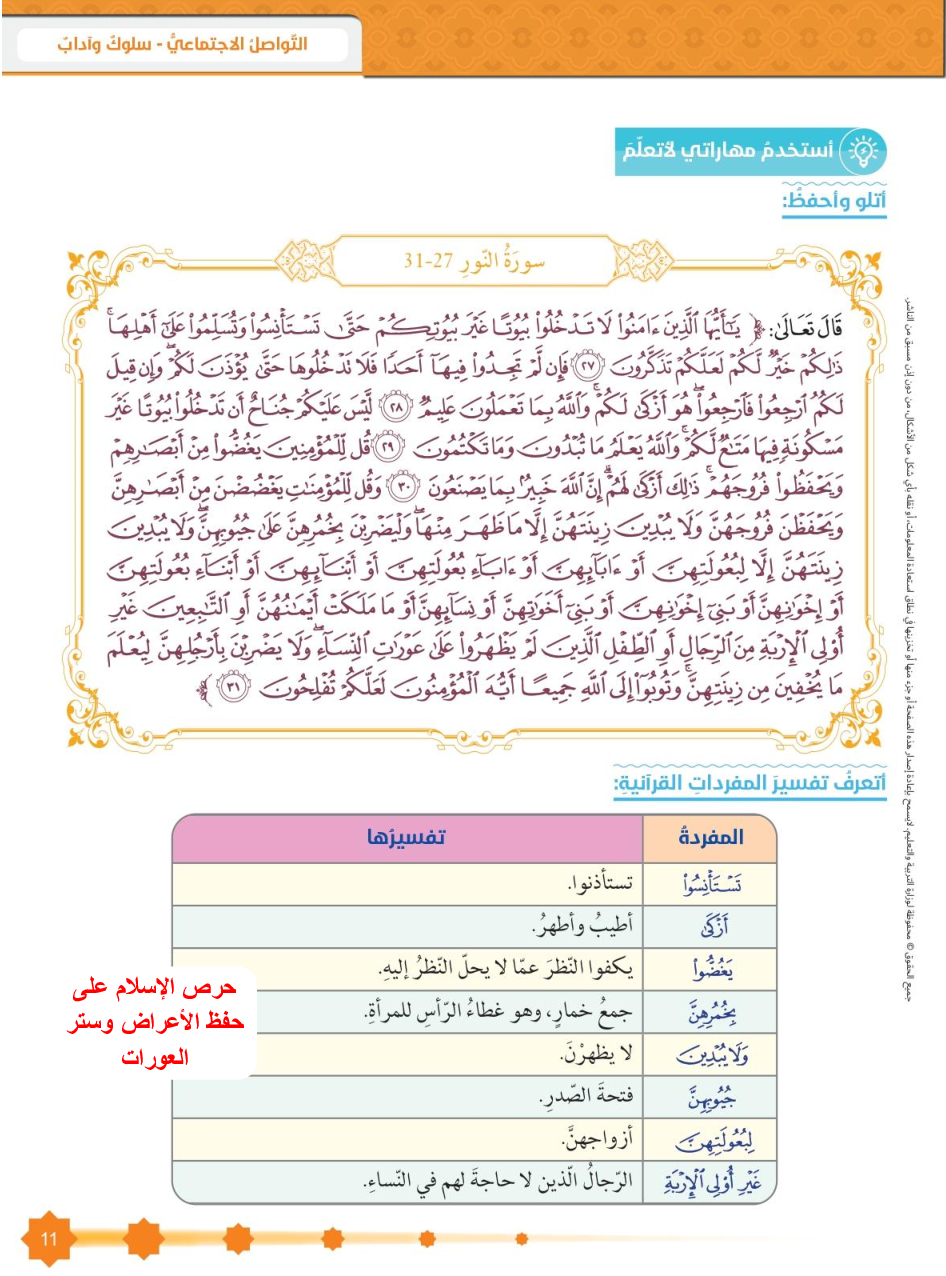 التّواصلُ الاجتماعيُّ - سلوكٌ وآدابٌ
أستخدمُ مهاراتي لأتعلّمَ
أتلو وأحفظُ:
سورَةُ النّورِ 27-31
قَالَ تَعَالَىٰ: ﴿ يَٰٓأَيُّهَا ٱلَّذِينَ ءَامَنُوا۟ لَا تَدْخُلُوا۟ بُيُوتًا غَيْرَ بُيُوتِكُمْ حَتَّىٰ تَسْتَأْنِسُوا۟ وَتُسَلِّمُوا۟ عَلَىٰٓ أَهْلِهَا ۚ
ذَٰلِكُمْ خَيْرٌ لَّكُمْ لَعَلَّكُمْ تَذَكَّرُونَ ٢٧ فَإِن لَّمْ تَجِدُوا۟ فِيهَآ أَحَدًا فَلَا تَدْخُلُوهَا حَتَّىٰ يُؤْذَنَ لَكُمْ ۖ وَإِن قِيلَ
لَكُمُ ٱرْجِعُوا۟ فَٱرْجِعُوا۟ ۖ هُوَ أَزْكَىٰ لَكُمْ ۚ وَٱللَّهُ بِمَا تَعْمَلُونَ عَلِيمٌ ٢٨ لَّيْسَ عَلَيْكُمْ جُنَاحٌ أَن تَدْخُلُوا۟ بُيُوتًا غَيْرَ
مَسْكُونَةٍ فِيهَا مَتَٰعٌ لَّكُمْ ۚ وَٱللَّهُ يَعْلَمُ مَا تُبْدُونَ وَمَا تَكْتُمُونَ ٢٩ قُل لِّلْمُؤْمِنِينَ يَغُضُّوا۟ مِنْ أَبْصَٰرِهِمْ
وَيَحْفَظُوا۟ فُرُوجَهُمْ ۚ ذَٰلِكَ أَزْكَىٰ لَهُمْ ۗ إِنَّ ٱللَّهَ خَبِيرٌۢ بِمَا يَصْنَعُونَ ٣٠ وَقُل لِّلْمُؤْمِنَٰتِ يَغْضُضْنَ مِنْ أَبْصَٰرِهِنَّ
وَيَحْفَظْنَ فُرُوجَهُنَّ وَلَا يُبْدِينَ زِينَتَهُنَّ إِلَّا مَا ظَهَرَ مِنْهَا ۖ وَلْيَضْرِبْنَ بِخُمُرِهِنَّ عَلَىٰ جُيُوبِهِنَّ ۖ وَلَا يُبْدِينَ
زِينَتَهُنَّ إِلَّا لِبُعُولَتِهِنَّ أَوْ ءَابَآئِهِنَّ أَوْ ءَابَآءِ بُعُولَتِهِنَّ أَوْ أَبْنَآئِهِنَّ أَوْ أَبْنَآءِ بُعُولَتِهِنَّ
أَوْ إِخْوَٰنِهِنَّ أَوْ بَنِىٓ إِخْوَٰنِهِنَّ أَوْ بَنِىٓ أَخَوَٰتِهِنَّ أَوْ نِسَآئِهِنَّ أَوْ مَا مَلَكَتْ أَيْمَٰنُهُنَّ أَوِ ٱلتَّٰبِعِينَ غَيْرِ
أُو۟لِى ٱلْإِرْبَةِ مِنَ ٱلرِّجَالِ أَوِ ٱلطِّفْلِ ٱلَّذِينَ لَمْ يَظْهَرُوا۟ عَلَىٰ عَوْرَٰتِ ٱلنِّسَآءِ ۖ وَلَا يَضْرِبْنَ بِأَرْجُلِهِنَّ لِيُعْلَمَ
مَا يُخْفِينَ مِن زِينَتِهِنَّ ۚ وَتُوبُوٓا۟ إِلَى ٱللَّهِ جَمِيعًا أَيُّهَ ٱلْمُؤْمِنُونَ لَعَلَّكُمْ تُفْلِحُونَ ٣١ ﴾
أتعرفُ تفسيرَ المفرداتِ القرآنيةِ:
المفردةُ تفسيرُها
تَسْتَأْنِسُوا۟ تستأذنوا.
أَزْكَىٰ أطيبُ وأطهرُ.
يَغُضُّوا۟ يكفوا النّظرَ عمّا لا يحلّ النّظرُ إليهِ.
بِخُمُرِهِنَّ جمعُ خمارٍ، وهو غطاءُ الرّأسِ للمرأةِ.
وَلَا يُبْدِينَ لا يظهرْنَ.
جُيُوبِهِنَّ فتحةَ الصّدرِ.
لِبُعُولَتِهِنَّ أزواجهنَّ.
غَيْرِ أُو۟لِى ٱلْإِرْبَةِ الرّجالُ الّذين لا حاجةَ لهم في النّساءِ.
حرص الإسلام على
حفظ الأعراض وستر
العورات
جميع الحقوق © محفوظة لوزارة التربية والتعليم. لايسمح بإعادة إصدار هذه الصفحة أو جزء منها أو تخزينها في نطاق استعادة المعلومات، أو نقله بأي شكل من الأشكال، من دون إذن مسبق من الناشر.
11